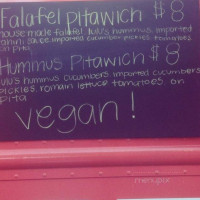 Falafel pitawich $8
house made falafel, lulu's hummus, imported
tahini sauce imported cucumber pickles, tomatoes
on pita
Hummus Pitawich $8
lulu's hummus cucumbers imported cucumbers
pickles, romain lettuce tomatoes, on
pita
vegan!